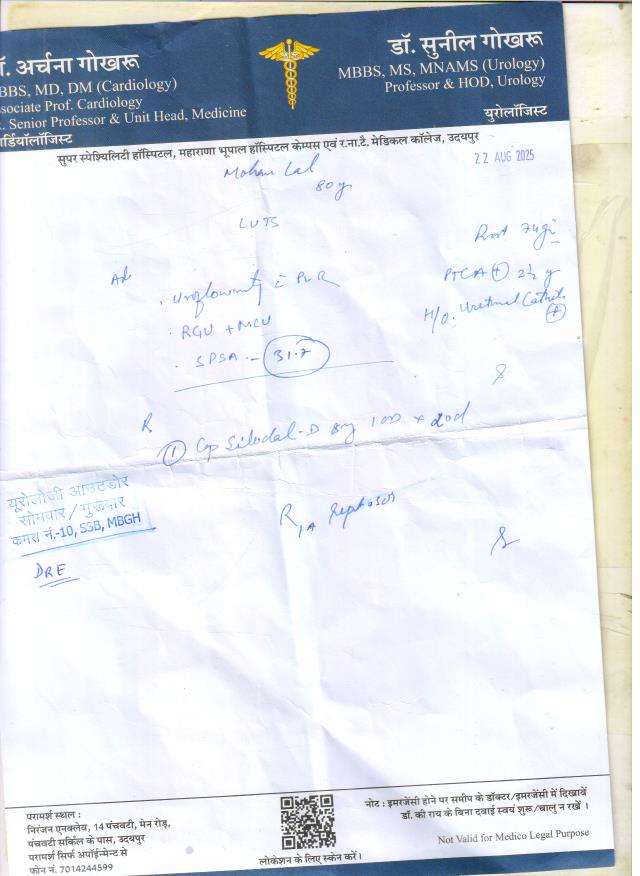 डॉ. अर्चना गोखरू
MBBS, MD, DM (Cardiology)
Associate Prof. Cardiology
Senior Professor & Unit Head, Medicine
कार्डियॉलॉजिस्ट
डॉ. सुनील गोखरू
MBBS, MS, MNAMS (Urology)
Professor & HOD, Urology
युरोलॉजिस्ट
सुपर स्पेश्यिलिटी हॉस्पिटल, महाराणा भूपाल हॉस्पिटल केम्पस एवं र.ना.टै. मेडिकल कॉलेज, उदयपुर
22 AUG 2025
Mohan Lal
80y
LUTS
Prost 74g
PTCA + 2½ y
H/O. Urethral Catheter +
Ad
Uroflowmetry c̄ PVR
RGU + MCU
SPSA - 31.7
R
① Cap Silodal-D 8mg 1OD x 20d
R/A Reports
यूरोलोजी आउटडोर
सोमवार / गुरूवार
कमरा नं.-10, SSB, MBGH
DRE
परामर्श स्थल :
निरंजन एनक्लेव, 14 पंचवटी, मेन रोड़,
पंचवटी सर्किल के पास, उदयपुर
परामर्श सिर्फ अपॉईन्मेन्ट से
फोन नं. 7014244599
लोकेशन के लिए स्केन करें।
नोट : इमरजेंसी होने पर समीप के डॉक्टर/इमरजेंसी में दिखावें
डॉ. की राय के बिना दवाई स्वयं शुरू/चालु न रखें ।
Not Valid for Medico Legal Purpose